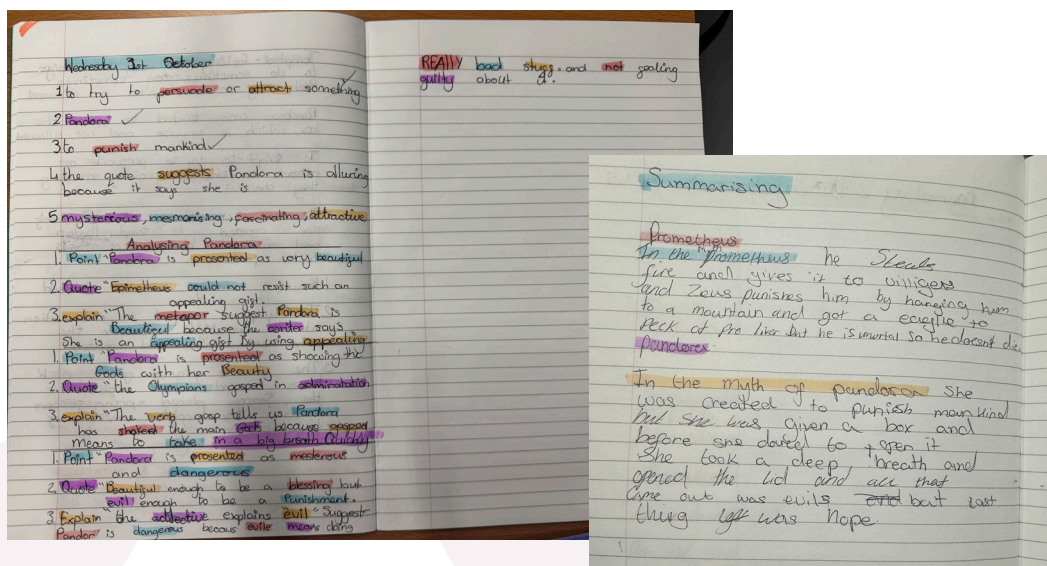 Wednesday 31st October
1 to try to persuade or attract something
2 Pandora
3 to punish mankind
4 the quote suggests Pandora is alluring
because it says she is
5 mysterious, mesmorising, fascinating, attractive
Analysing Pandora
1. Point "Pandora is presented as very beautiful
2. Quote "Epimetheus could not resist such an
appealing gist.
3. explain "The metapor suggest Pandora is
Beautiful because the writer says
She is an appealing gist by using appealing
1. Point "Pandora is presented as showing the
Gods with her Beauty
2. Quote "the Olympians gasped in admiratation
3. explain "The verb gasp tells us Pandora
has shoked the main Gods because gasped
means to take in a big breath Quickly
1. Point "Pandora is presented as mesterous
and dangerous
2. Quote "Beautiful enough to be a blessing but
evil enough to be a Punishment.
3. Explain "the adjective explains "evil" Suggest
Pandor is dangerous becous evile means doing
REALLY bad stuff and not feeling
guilty about it.
Summarising
Prometheus
In the "Prometheus he Steals
fire and gives it to villigers
and Zeus punishes him by hanging him
to a mountain and got a eagle to
Peck at the liver but he is imortal so he doesnt die.
Pandores
In the myth of pandora she
was created to punish mankind
but she was given a box and
before she dared to open it
She took a deep breath and
opened the lid and all that
came out was evils but last
thing left was hope.